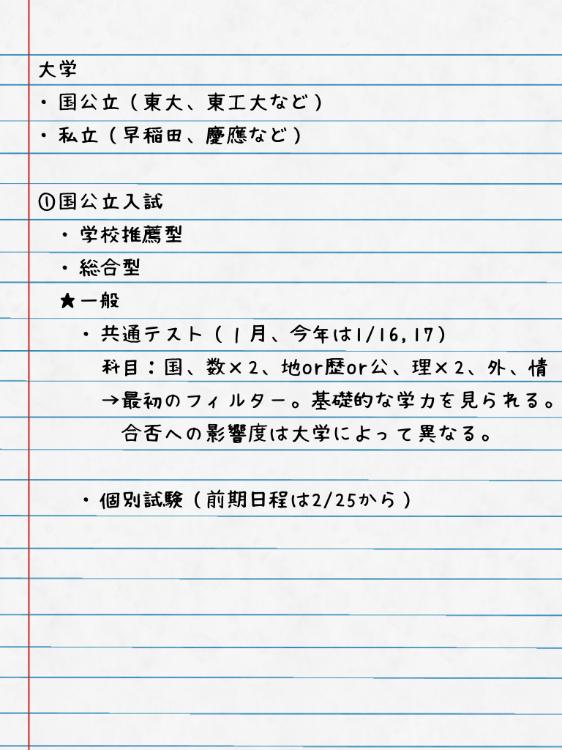 大学
・国公立（東大、東工大など）
・私立（早稲田、慶應など）
①国公立入試
・学校推薦型
・総合型
★一般
・共通テスト（1月、今年は1/16,17）
科目：国、数×2、地or歴or公、理×2、外、情
→最初のフィルター。基礎的な学力を見られる。
合否への影響度は大学によって異なる。
・個別試験（前期日程は2/25から）